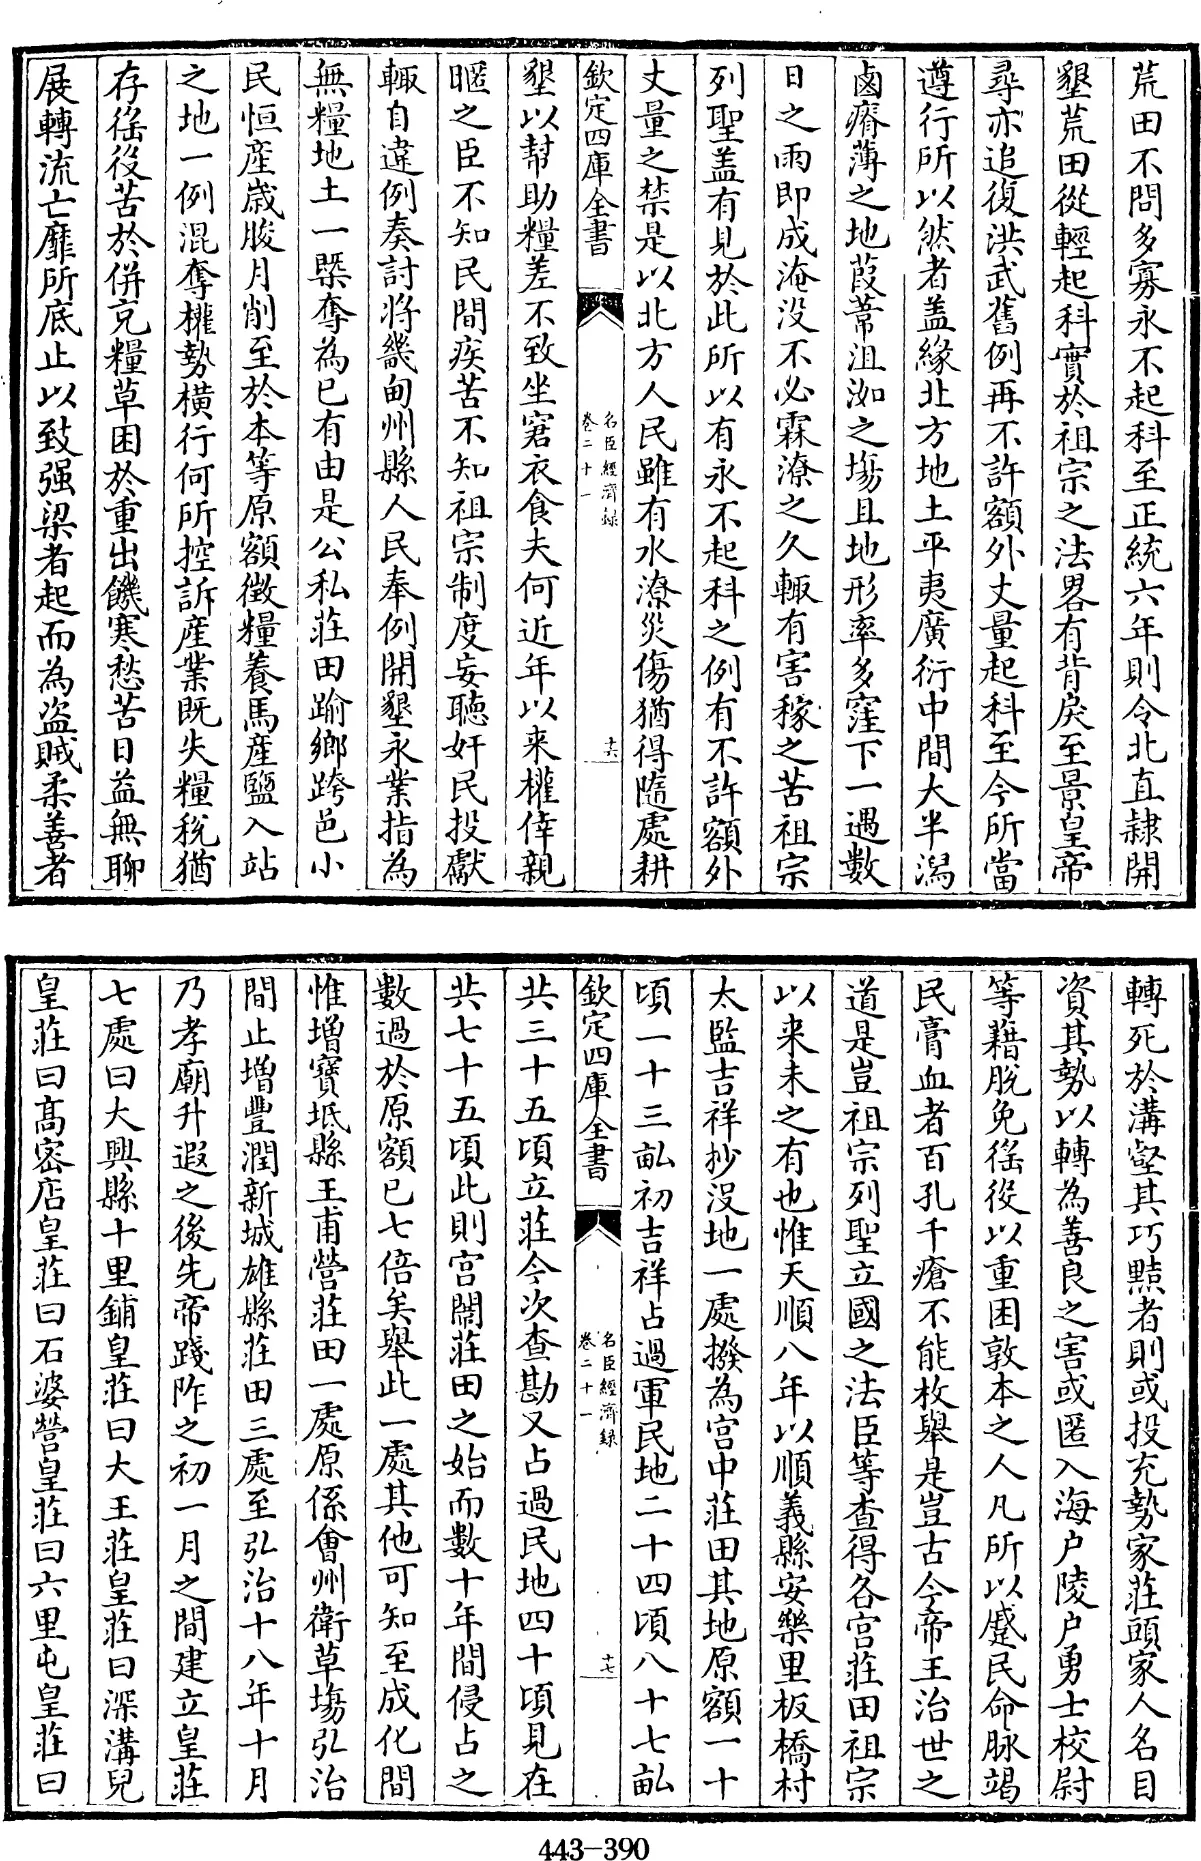 荒田不問多寡永不起科至正統六年則令北直隸開
墾荒田從輕起科實於祖宗之法畧有背戾至景皇帝
尋亦追復洪武舊例再不許額外丈量起科至今所當
遵行所以然者盖緣北方地土平夷廣衍中間大半瀉
鹵瘠薄之地葭葦沮洳之塲且地形率多窪下一遇數
日之雨即成淹没不必霖潦之久輒有害稼之苦祖宗
列聖盖有見於此所以有永不起科之例有不許額外
丈量之禁是以北方人民雖有水潦災傷猶得隨處耕
欽定四庫全書
名臣經濟録
卷二十一
十六
墾以幇助糧差不致坐窘衣食夫何近年以来權倖親
暱之臣不知民間疾苦不知祖宗制度妄聽奸民投獻
輒自違例奏討將畿甸州縣人民奉例開墾永業指為
無糧地土一槩奪為已有由是公私莊田踰鄉跨邑小
民恒産歲朘月削至於本等原額徵糧養馬産鹽入站
之地一例混奪權勢横行何所控訴産業既失糧稅猶
存徭役苦於併充糧草困於重出饑寒愁苦日益無聊
展轉流亡靡所底止以致强梁者起而為盗賊柔善者
轉死於溝壑其巧黠者則或投充勢家莊頭家人名目
資其勢以轉為善良之害或匿入海户陵户勇士校尉
等籍脱免徭役以重困敦本之人凡所以蹙民命脉竭
民膏血者百孔千瘡不能枚舉是豈古今帝王治世之
道是豈祖宗列聖立國之法臣等查得各宫莊田祖宗
以来未之有也惟天順八年以順義縣安樂里板橋村
太監吉祥抄没地一處撥為宫中莊田其地原額一十
頃一十三畝初吉祥占過軍民地二十四頃八十七畝
欽定四庫全書
名臣經濟録
卷二十一
十七
共三十五頃立莊今次查勘又占過民地四十頃見在
共七十五頃此則宫闈莊田之始而數十年間侵占之
數過於原額已七倍矣舉此一處其他可知至成化間
惟增寳坻縣王甫營莊田一處原係會州衛草塲弘治
間止增豐潤新城雄縣莊田三處至弘治十八年十月
乃孝廟升遐之後先帝踐阼之初一月之間建立皇莊
七處曰大興縣十里鋪皇莊曰大王莊皇莊曰深溝兒
皇莊曰髙密店皇莊曰石婆營皇莊曰六里屯皇莊曰
443-390